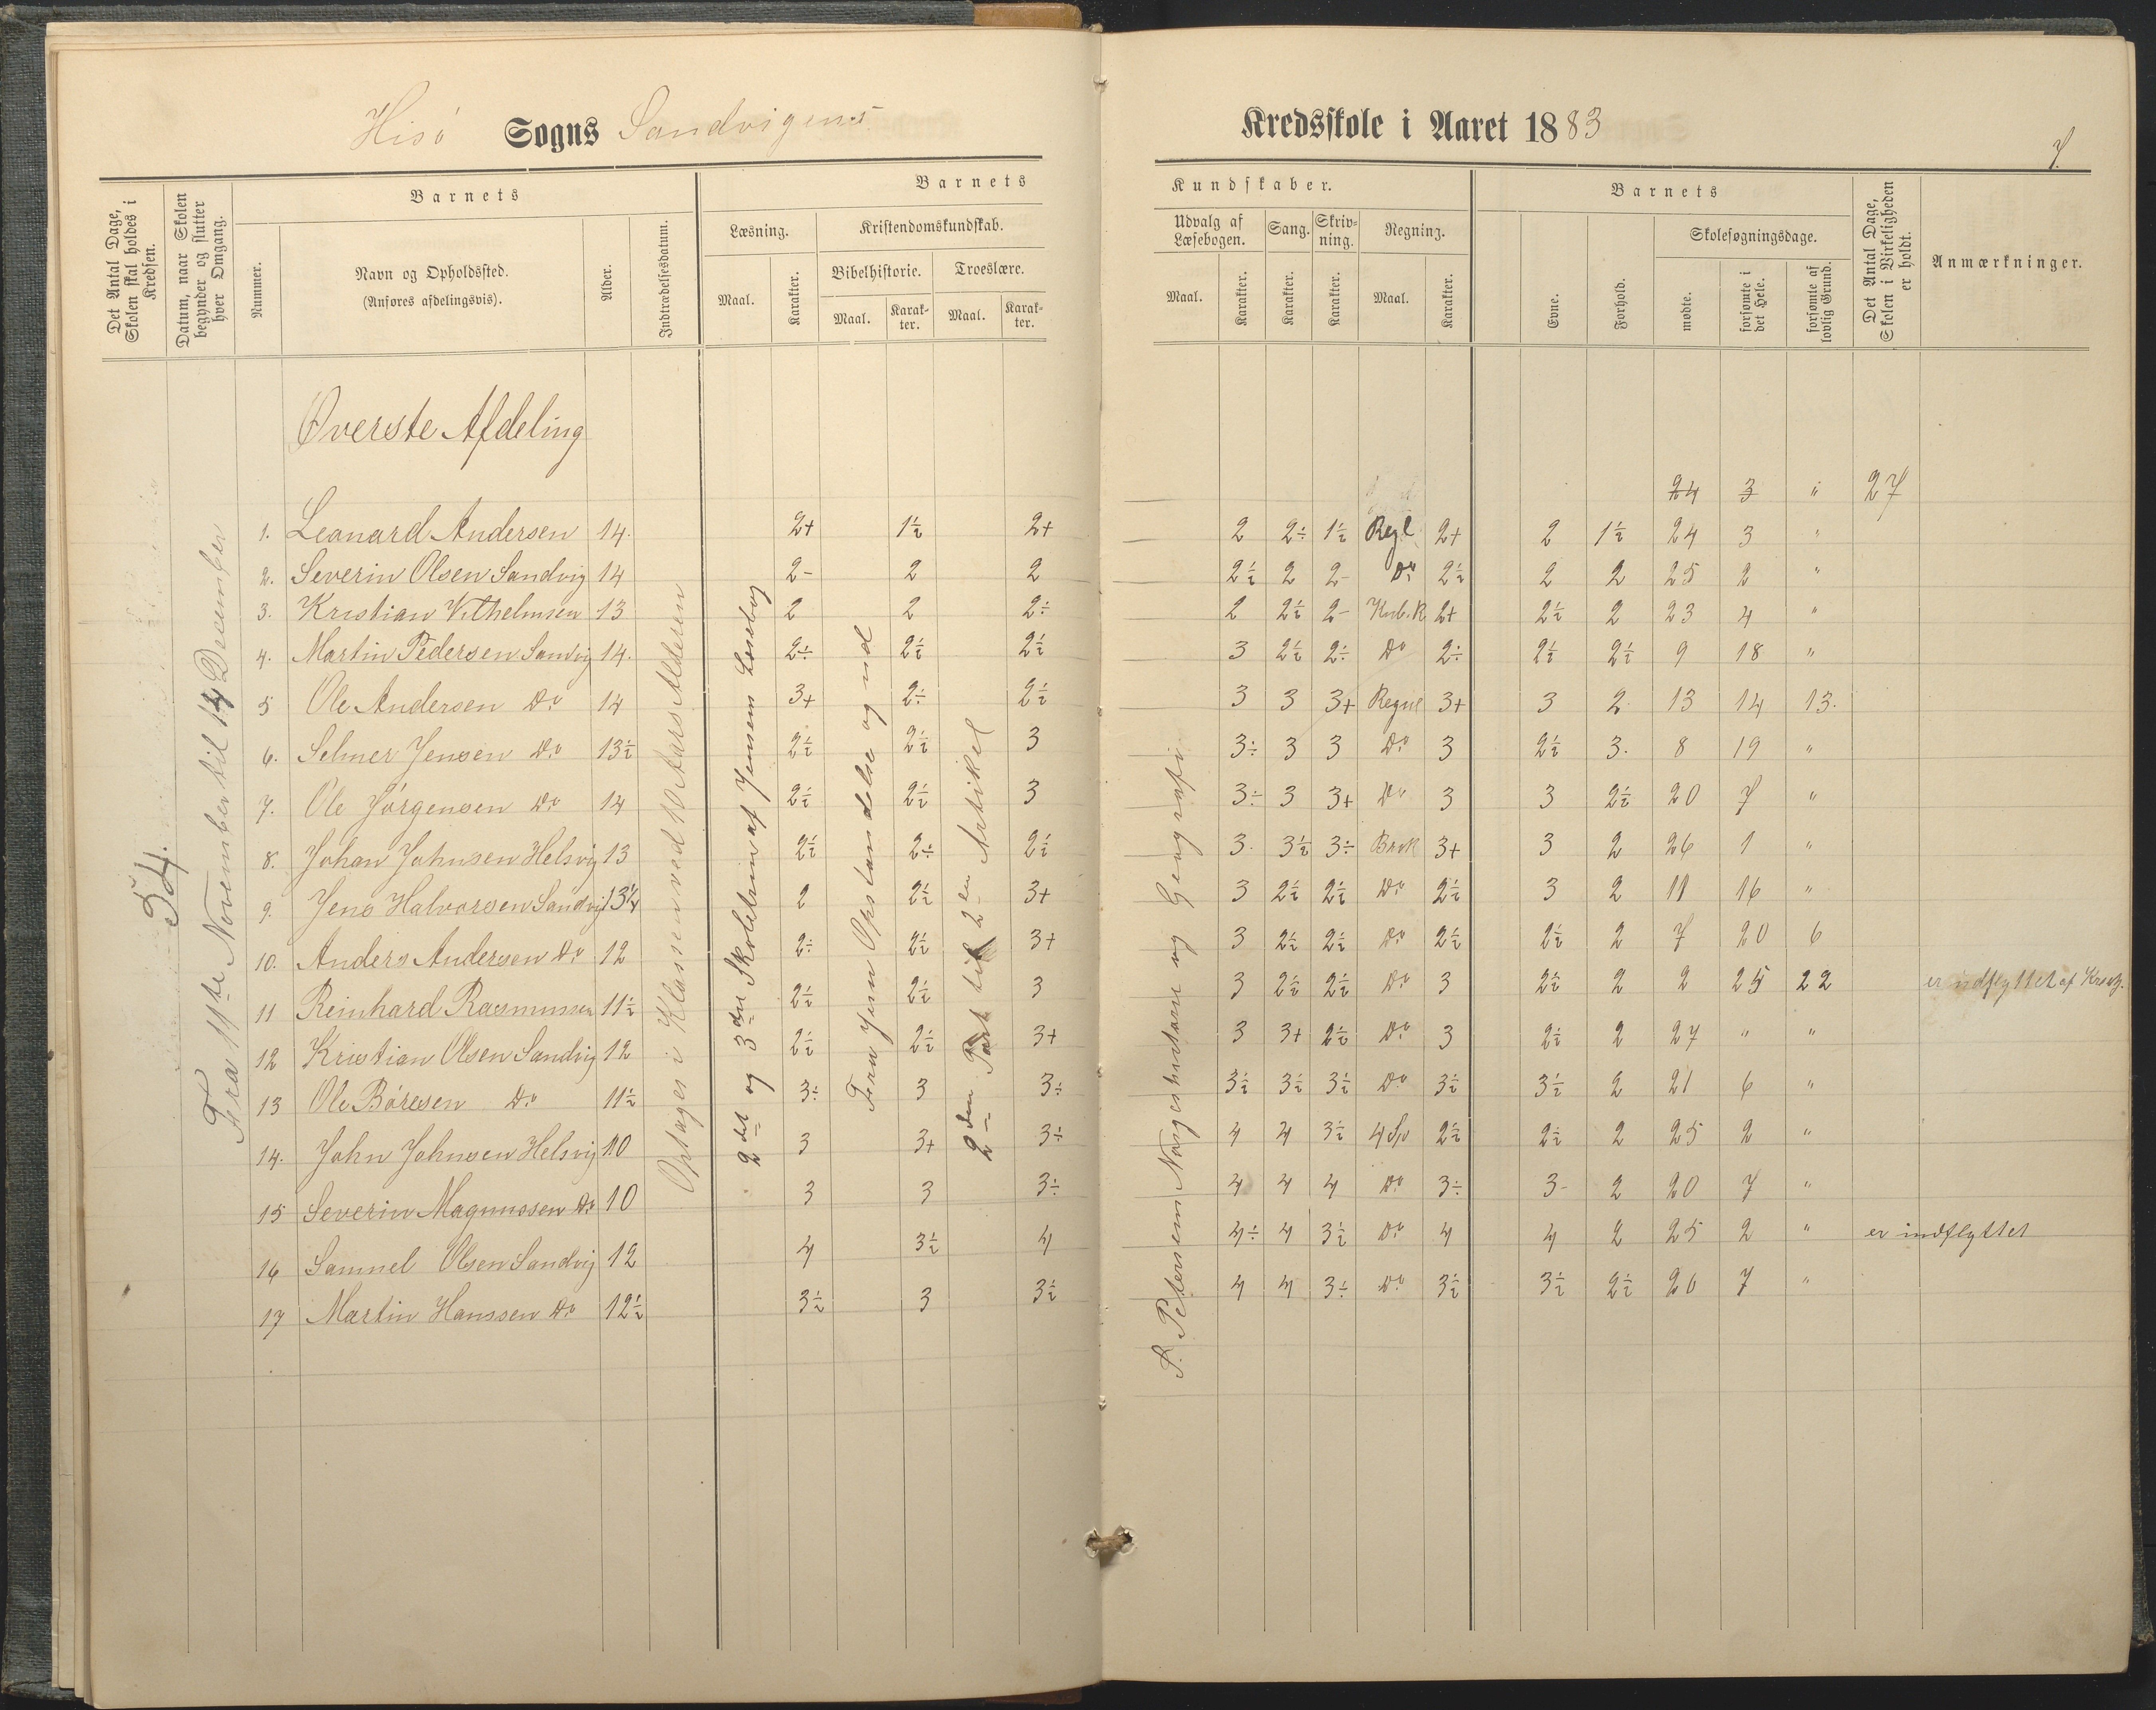 Hisö Sogns Sandvigens Kredsskole i Aaret 1883
7.
Det Antal Dage, Skolen skal holdes i Kredsen.
Datum, naar Skolen begynder og slutter hver Omgang.
Nummer.
Barnets
Navn og Opholdssted.
(Anføres afdelingsvis).
Alder.
Indtrædelsesdatum.
Barnets Kundskaber.
Læsning.
Maal.
Karakter.
Kristendomskundskab.
Bibelhistorie.
Maal.
Karakter.
Troeslære.
Maal.
Karakter.
Udvalg af Læsebogen.
Maal.
Karakter.
Sang.
Karakter.
Skrivning.
Karakter.
Regning.
Maal.
Karakter.
Barnets
Evne.
Forhold.
Skolesøgningsdage.
mødte.
forsømte i det Hele.
forsømte af lovlig Grund.
Det Antal Dage, Skolen i Virkeligheden er holdt.
Anmærkninger.
54.
Fra 11te November til 14 December
Optages i Klassen ved 10 Aars Alderen
2det og 3die Skoletrin af Jensens Læsebog
Fra Jesu Opstandelse og ud
2den Part til 2en Artikel
S. Petersens Norgeshistorie og Geografi
Øverste Afdeling
24 3 " 27
1. Leonard Andersen 14. 2+ 1½ 2+ 2 2÷ 1½ Regl 2+ 2 1½ 24 3 "
2. Severin Olsen Sandvig 14 2- 2 2 2½ 2 2- Do 2½ 2 2 25 2 "
3. Kristian Vilhelmsen 13 2 2 2÷ 2 2½ 2- Kub.R 2+ 2½ 2 23 4 "
4. Martin Pedersen Sandvig 14. 2÷ 2½ 2½ 3 2½ 2÷ Do 2÷ 2½ 2½ 9 18 "
5 Ole Andersen Do 14 3+ 2÷ 2½ 3 3 3+ Regne 3+ 3 2 13 14 13.
6. Selmer Jensen Do 13½ 2½ 2½ 3 3÷ 3 3 Do 3 2½ 3. 8 19 "
7. Ole Jörgensen Do 14 2½ 2½ 3 3÷ 3 3+ Do 3 3 2½ 20 7 "
8. Johan Johnsen Helsvig 13 2½ 2÷ 2½ 3. 3½ 3÷ Brok 3+ 3 2 26 1 "
9. Jens Halvorsen Sandvig 13¼ 2 2½ 3+ 3 2½ 2½ Do 2½ 3 2 11 16 "
10. Anders Andersen Do 12 2÷ 2½ 3+ 3 2½ 2½ Do 2½ 2½ 2 7 20 6
11 Reinhard Rasmussen 11½ 2½ 2½ 3 3 2½ 2½ Do 3 2½ 2 2 25 22 er udflyttet af
12 Kristian Olsen Sandvig 12 2½ 2½ 3+ 3 3+ 2½ Do 3 2½ 2 27 " "
13 Ole Böresen Do 11½ 3÷ 3 3÷ 3½ 3½ 3½ Do 3½ 3½ 2 21 6 "
14. John Johnsen Helsvig 10 3 3+ 3÷ 4 4 3½ 4 Sp 2½ 2½ 2 25 2 "
15 Severin Magnussen Do 10 3 3 3÷ 4 4 4 Do 3÷ 3- 2 20 7 "
16 Samuel Olsen Sandvig 12 4 3½ 4 4÷ 4 3½ Do 4 4 2 25 2 " er indflyttet
17 Martin Hanssen Do 12½ 3½ 3 3½ 4 4 3÷ Do 3½ 3½ 2½ 20 7 "